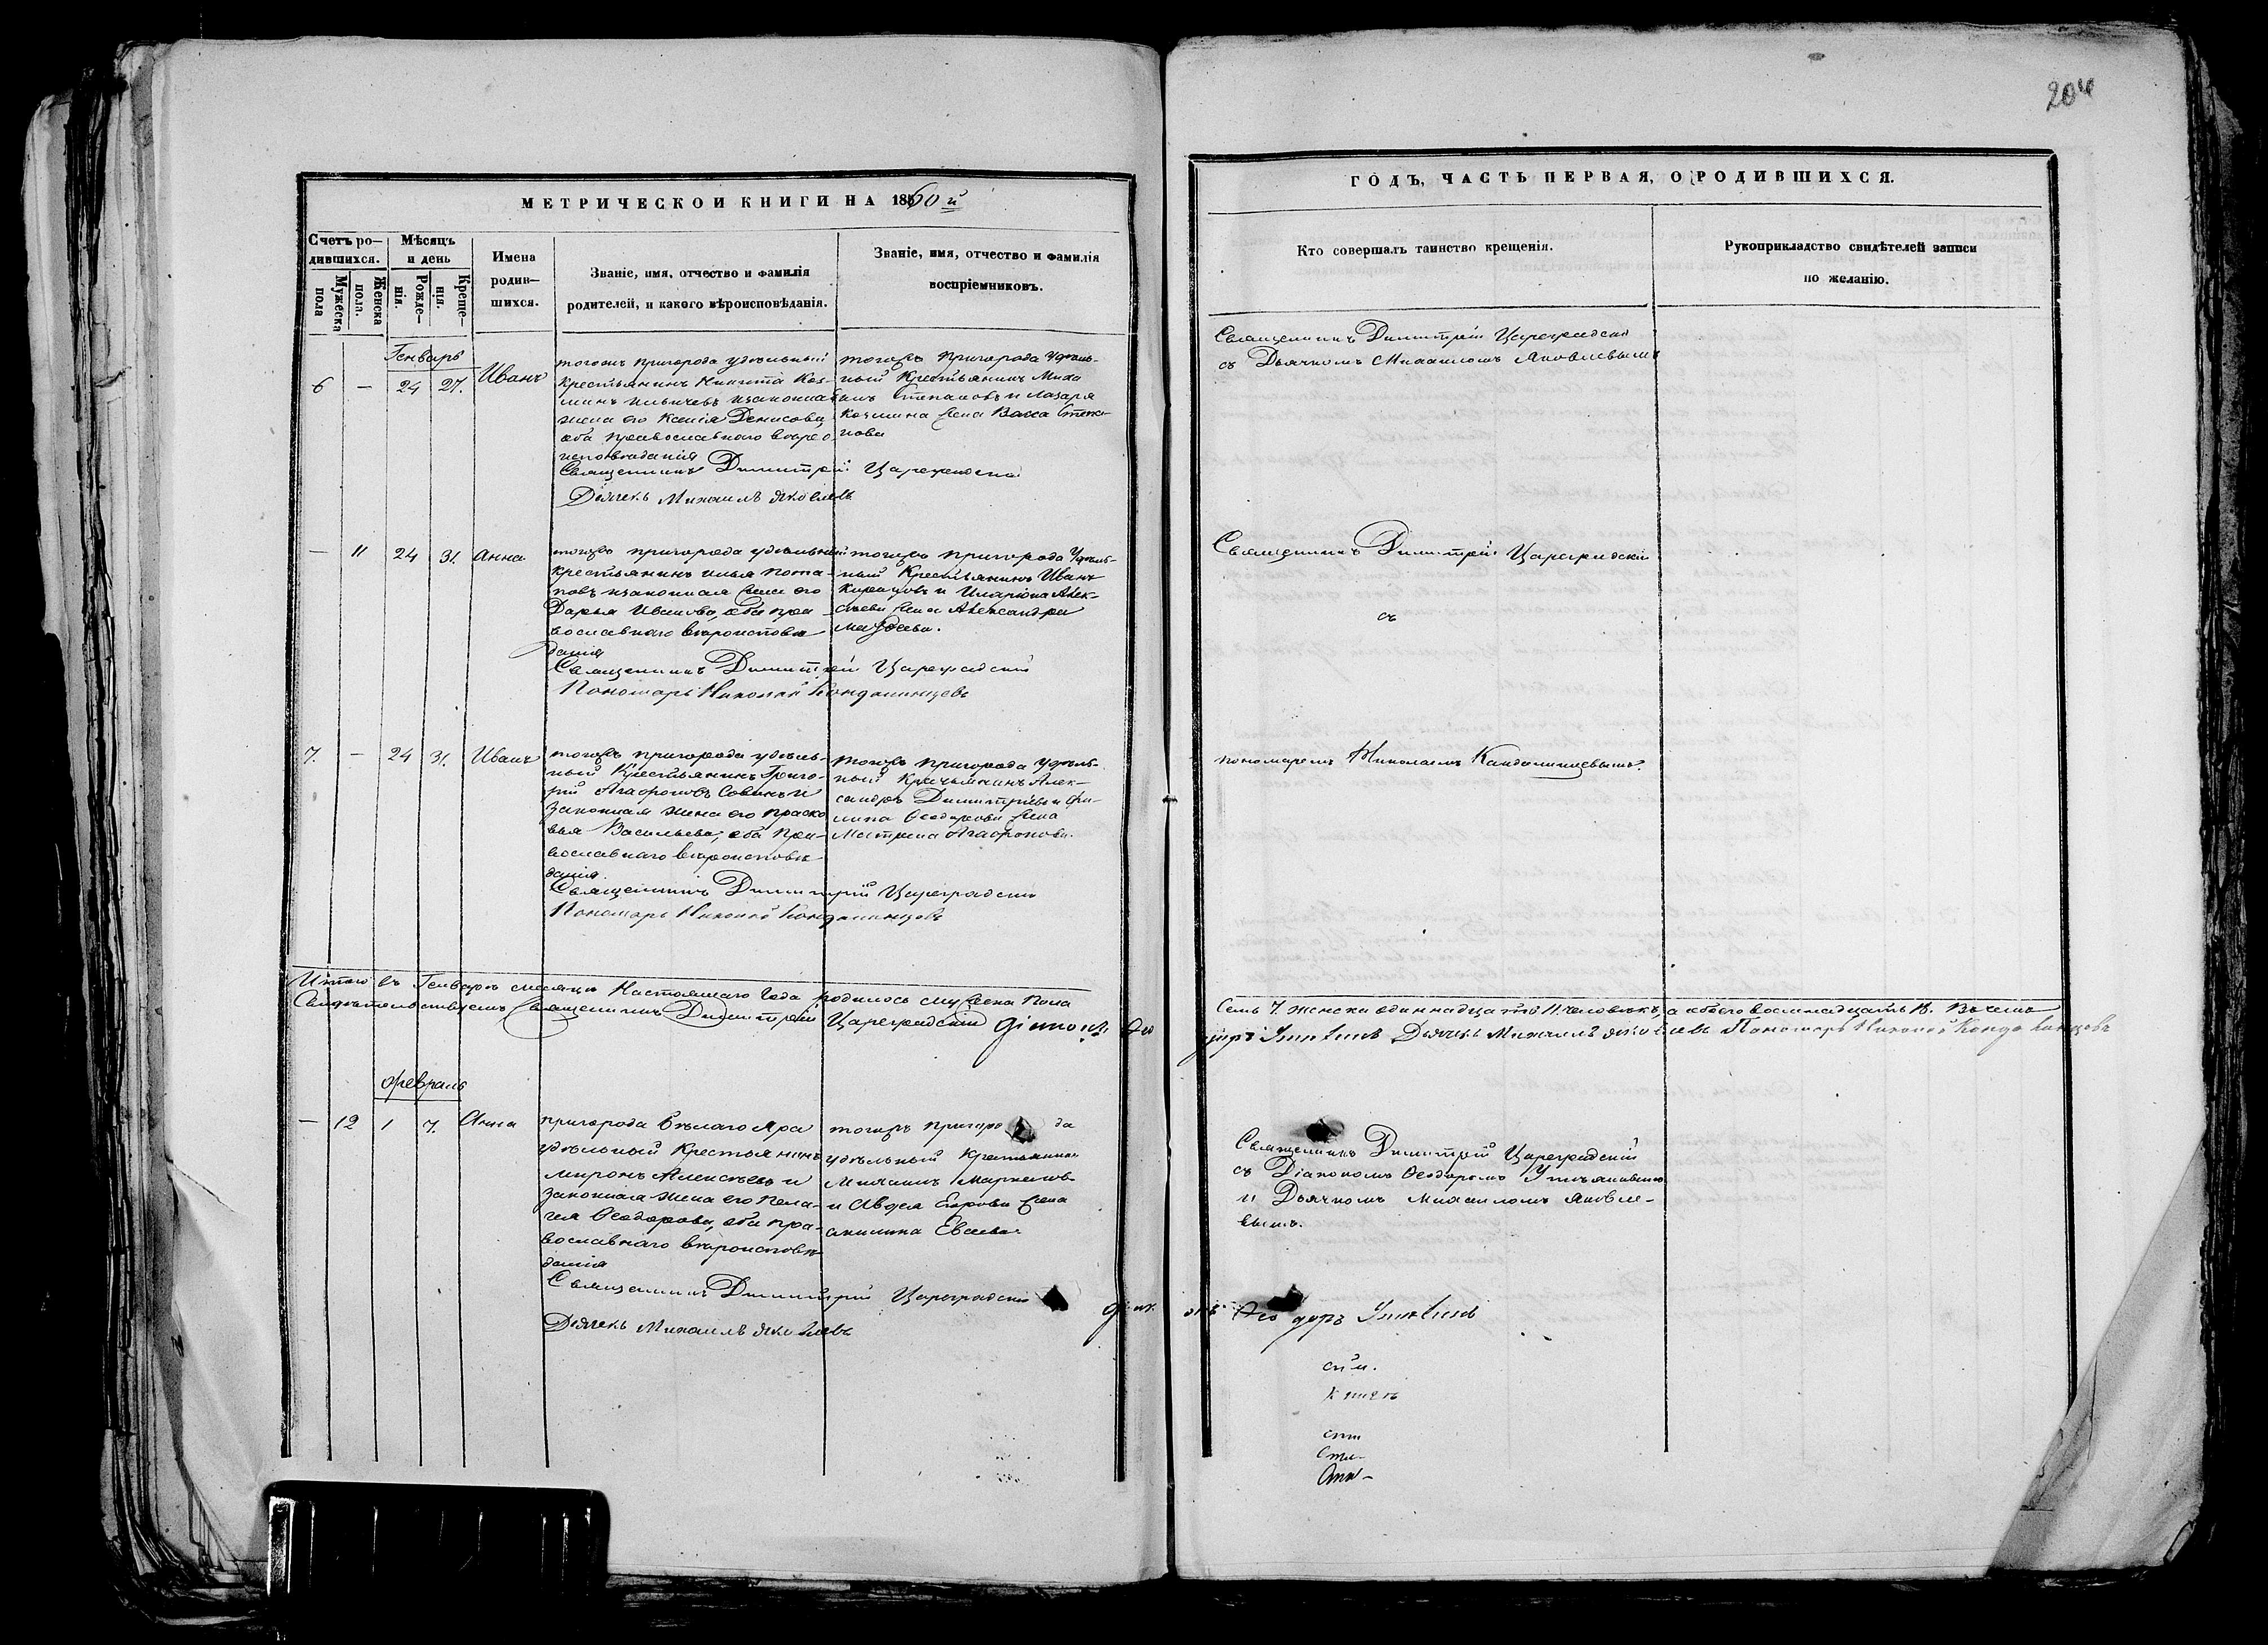 204
МЕТРИЧЕСКОЙ КНИГИ НА 1860 й
ГОДЪ, ЧАСТЬ ПЕРВАЯ, О РОДИВШИХСЯ.
Счетъ ро-
дившихся.
Мужеска
пола
Женска
пола.
Мѣсяцъ
и день
Рожде-
нія.
Креще-
нія.
Имена
родив-
шихся.
Званіе, имя, отчество и фамилія
родителей, и какого вѣроисповѣданія.
Званіе, имя, отчество и фамилія
воспріемниковъ.
Кто совершалъ таинство крещенія.
Рукоприкладство свидѣтелей записи
по желанію.
Генварь
6 — 24 27. Иванъ
тогожъ пригорода удѣльный
крестьянинъ Никита Коз-
минъ изаконная
жена его Ксенія Денисова
оба православнаго вѣро
исповѣданія
Священникъ Димитрій Цареградскій
Дьячекъ Михаилъ Яковлевъ
тогожъ пригорода Удѣль-
ный Крестьянинъ Миха
илъ Степановъ и Лазаря
Козмина жена Васса Степа-
нова
Священникъ Димитрій Цареградскій
съ Дьячкомъ Михаиломъ Яковлевымъ
— 11 24 31. Анна
тогожъ пригорода удѣльный
крестьянинъ Илья Пота-
повъ изаконная жена его
Дарья Иванова, оба пра-
вославнаго вѣроисповѣ
данія
Священникъ Димитрій Цареградскій
Пономарь Николай Кондалинцевъ
тогожъ пригорода Удѣль-
ный Крестьянинъ Иванъ
и Иларіона Алек-
сѣева жена Александра
Священникъ Димитрій Цареградскій
съ
7. — 24 31. Иванъ
тогожъ пригорода удѣль-
ный Крестьянинъ Григо-
рій Агафоновъ Савинъ и
законная жена его Праско
вья Васильева, оба пра-
вославнаго вѣроисповѣ
данія.
Священникъ Димитрій Цареградскій
Пономарь Николай Кондалинцевъ
тогожъ пригорода Удѣль-
ный Крестьянинъ Алек-
сандръ Димитріевъ и Фи-
липа Ѳеодорова жена
Матрена Агафонова.
пономаремъ Николаемъ Кандалинцевымъ.
Итого въ Генварѣ мѣсяцѣ Настоящаго Года родилось мужеска Пола
Семь 7. женска одиннадцать 11. человѣкъ, а обоего восемнадцать 18. Въ чемъ
Свидѣтельствуемъ Священникъ Димитрій Цареградскій Діаконъ Ѳео
доръ Дьячекъ Михаилъ Яковлевъ Пономарь Николай Кондалинцевъ
Февраль
— 12 1 7. Анна
пригорода Бѣлаго Яра
удѣльный Крестьянинъ
Миронъ Алексѣевъ и
законная жена его Пела-
гея Ѳеодорова, оба пра-
вославнаго вѣроисповѣ
данія
Священникъ Димитрій Цареградскій
Дьячекъ Михаилъ Яковлевъ
тогожъ пригоро да
удѣльный Крестьянинъ
и Авдея Егорова жена
Акилина Евсеева
Священникъ Димитрій Цареградскій
съ Діакономъ Ѳеодоромъ
и Дьячкомъ Михаиломъ Яковле-
вымъ.
Діаконъ Ѳео доръ